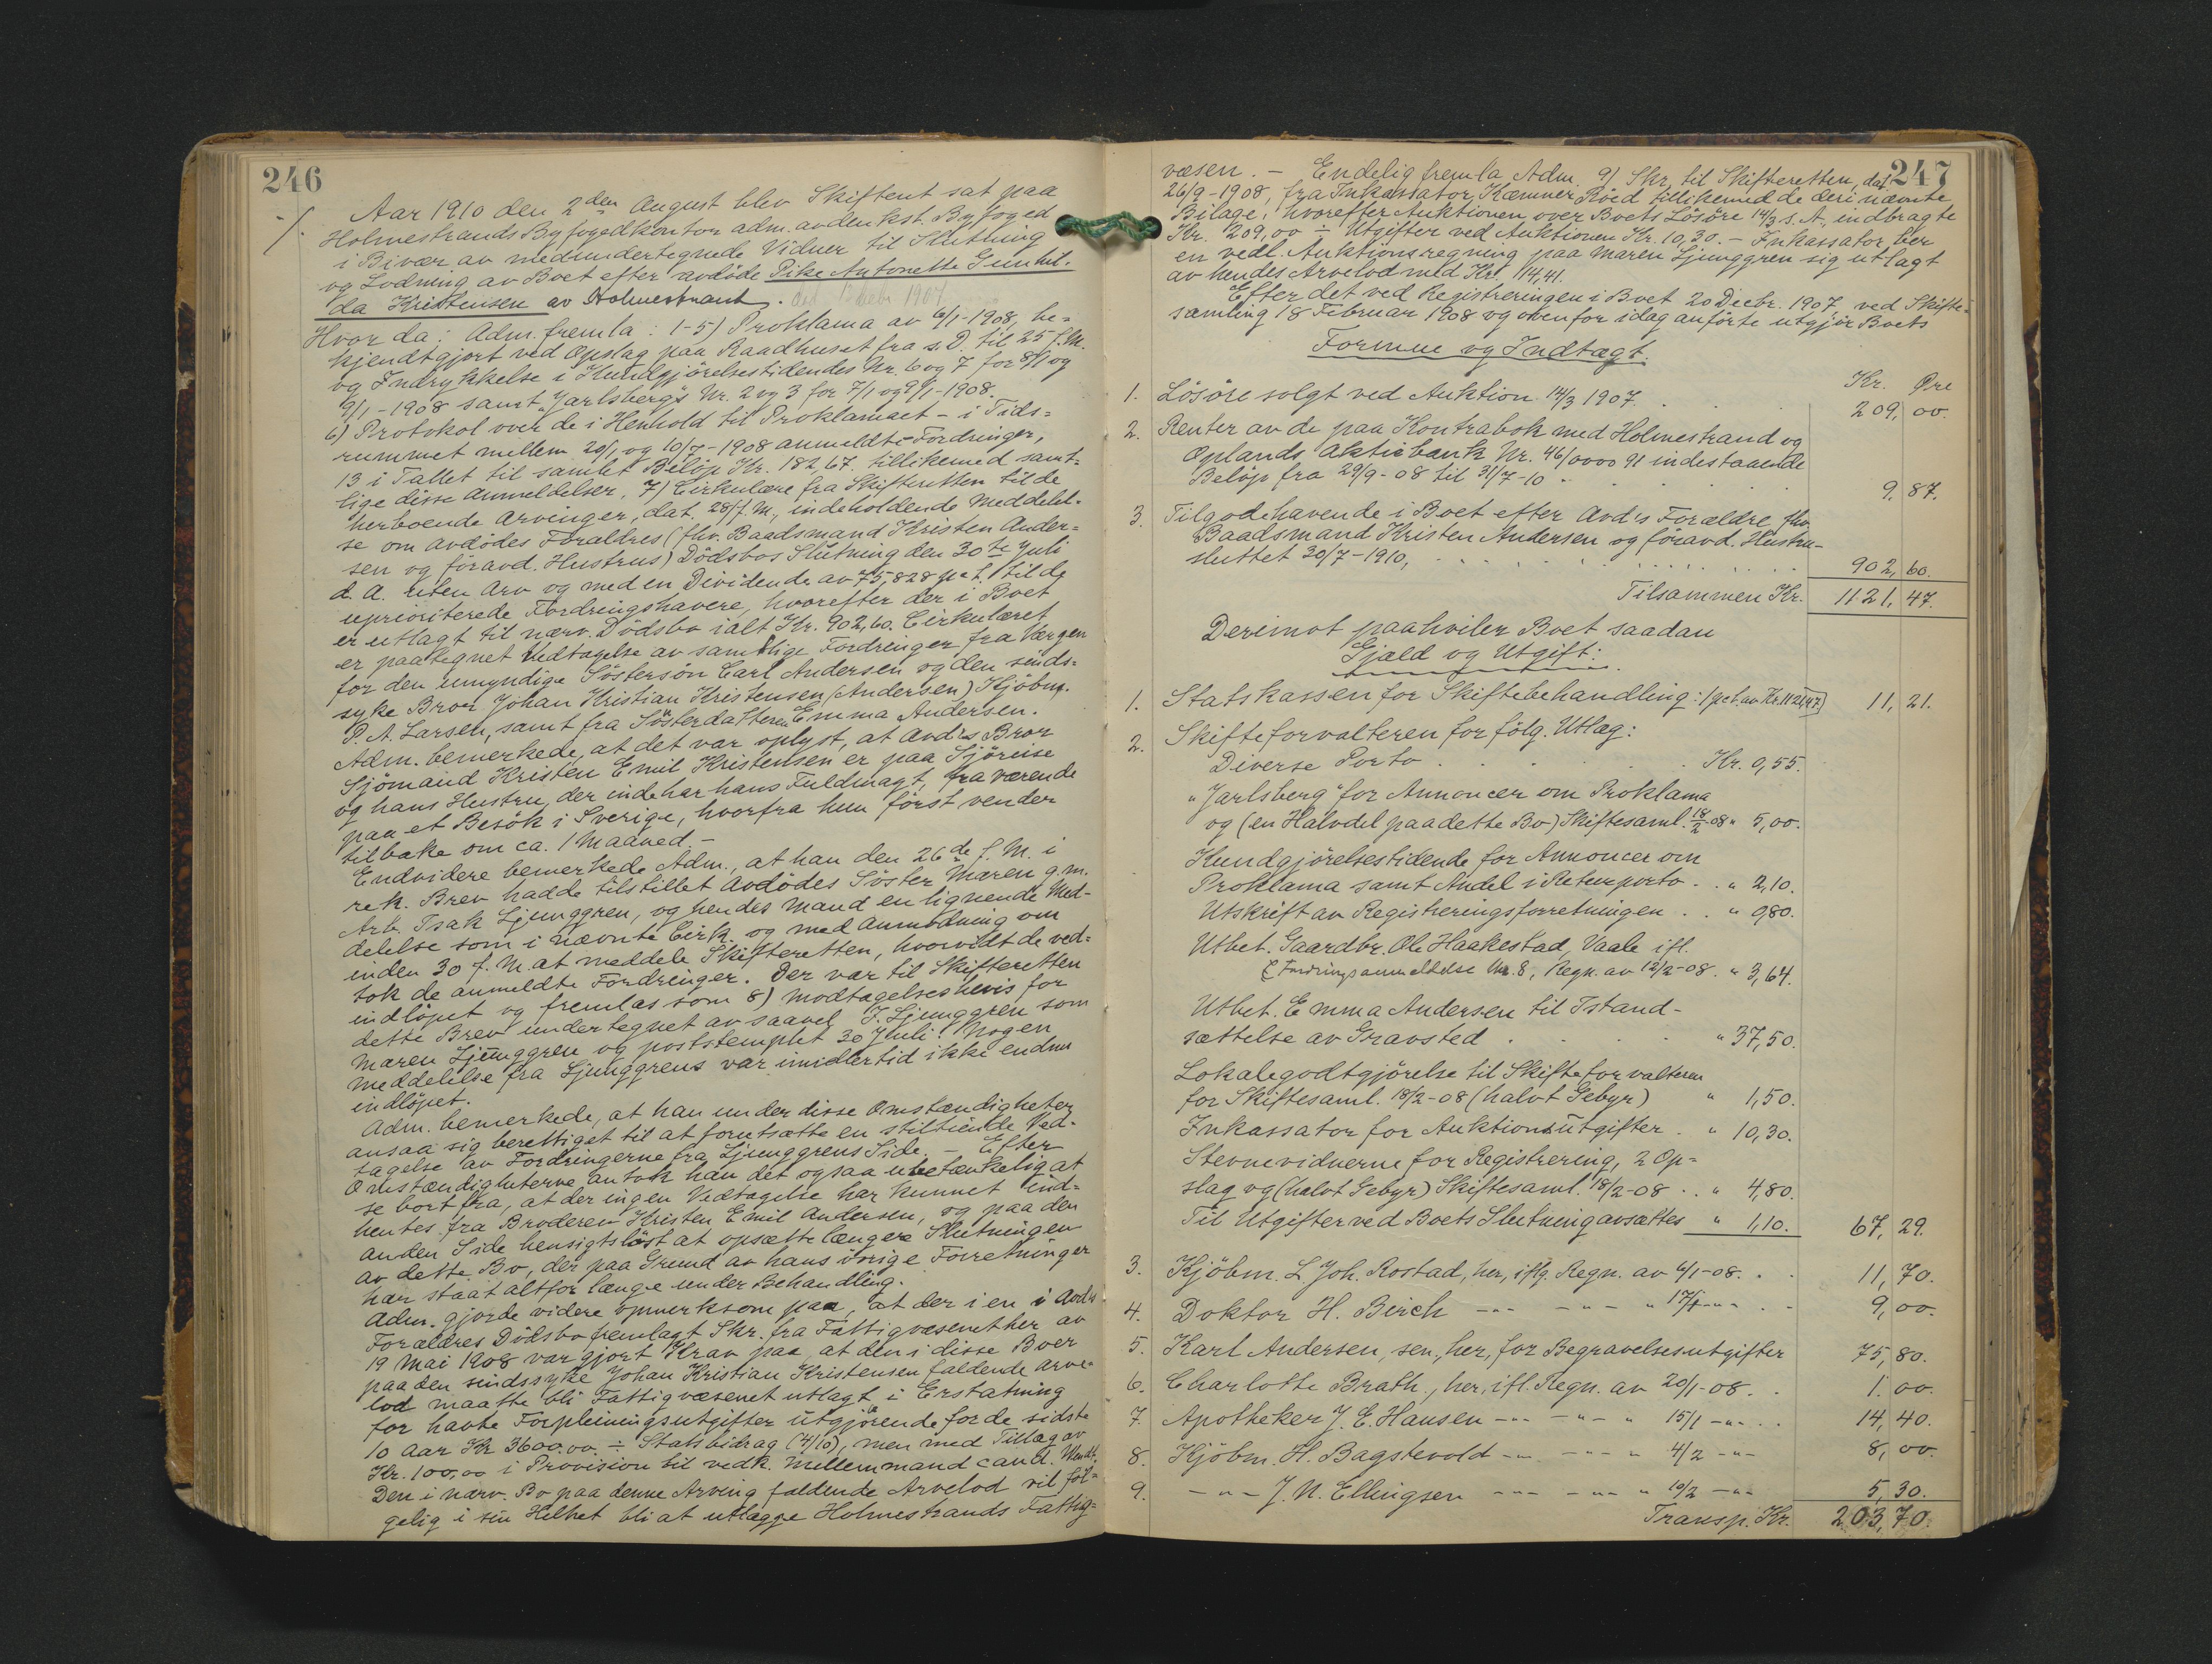 246
Aar 1910 den 2den August blev Skifteret sat paa
Holmestrands Byfogedkontor adm. av den kst. Byfoged
i Bivær av medundertegnede Vidner til Slutning
og Lodning av Boet efter avdöde Pike Antonette Gunhil-
da Kristensen av Holmestrand.
Hvor da: Adm. fremla: 1-5) Proklama av 6/1-1908, be-
kjendtgjort ved Opslag paa Raadhuset fra s. D. til 25 f. M.
og Indrykkelse i Kundgjörelsestidendes Nr. 6 og 7 for 8/1 og
9/1-1908 samt "Jarlsberg"s Nr. 2 og 3 for 7/1 og 9/1-1908.
6) Protokol over de i Henhold til Proklamaet - i Tids-
rummet mellem 20/1 og 10/7-1908 anmeldte Fordringer,
13 i Tallet til samlet Belöp Kr. 182,67. tillikemed samt-
lige disse Anmeldelser. 7) Cirkulære fra Skifteretten til de
herboende Arvinger, dat. 28/f. M., indeholdende Meddelel-
se om avdödes Forældres (fhv. Baadsmand Kristen Ander-
sen og föravd. Hustrus) Dödsbos Slutning den 30te Juli
d. A. uten Arv og med en Dividende av 75,828 pct. til de
uprioriterede Fordringshavere, hvorefter der i Boet
er utlagt til nærv. Dödsbo ialt Kr. 902,60. Cirkulæret
er paategnet Vedtagelse av samtlige Fordringer fra Værgen
for den umyndige Söstersön Carl Andersen og den sinds-
syke Bror Johan Kristian Kristensen (Andersen) Kjöbm.
P. A. Larsen, samt fra Sösterdatteren Emma Andersen.
Adm. bemerkede, at det var oplyst, at Avd's Bror
Sjömand Kristen Emil Kristensen er paa Sjöreise
og hans Hustru, der indehar hans Fuldmagt, fraværende
paa et Besök i Sverige, hvorfra hun först vender
tilbake om ca. 1 Maaned. -
Endvidere bemerkede Adm., at han den 26de f. M. i
rek. Brev hadde tilstillet Avdödes Söster Maren g. m.
Arb. Isak Ljunggren, og hendes Mand en lignende Med-
delelse som i nævnte Cirk. og med Anmodning om
inden 30 f. M. at meddele Skifteretten, hvorvidt de ved-
tok de anmeldte Fordringer. Der var til Skifteretten
indlöpet og fremlas som 8) Modtagelsesbevis for
dette Brev undertegnet av saavel I. Ljunggren som
Maren Ljunggren og poststemplet 30 Juli. Nogen
meddelelse fra Ljunggrens var imidlertid ikke endnu
indlöpet.
Adm. bemerkede, at han under disse Omstændigheter
ansaa sig berettiget til at forutsætte en stiltiende Ved-
tagelse av Fordringerne fra Ljunggrens Side. - Efter
Omstændigheterne antok han det ogsaa ubetænkelig at
se bort fra, at der ingen Vedtagelse har kunnet ind-
hentes fra Broderen Kristen Emil Andersen, og paa den
anden Side hensigtslöst at opsætte længere Slutningen
av dette Bo, der paa Grund av hans övrige Forretninger
har staat altfor længe under Behandling.
Adm. gjorde videre opmerksom paa, at der i en i Avd's
Forældres Dödsbo fremlagt Skr. fra Fattigvæsenet her av
19 Mai 1908 var gjort Krav paa, at den i disse Boer
paa den sindssyke Johan Kristian Kristensen faldende Arve-
lod maatte bli Fattigvæsenet utlagt i Erstatning
for havte Forpleiningsutgifter utgjörende for de sidste
10 Aar Kr 3600.00. ÷ Statsbidrag (4/10), men med Tillæg av
Kr. 100,00 i Provision til vedk. Mellemmand cand. Wendt.
Den i nærv. Bo paa denne Arving faldende Arvelod vil föl-
gelig i sin Helhet bli at utlægge Holmestrands Fattig-
247
væsen. - Endelig fremla Adm. 9) Skr. til Skifteretten, dat.
26/9-1908, fra Inkassator, Kæmner Röed tillikemed de deri nævnte
Bilage, hvorefter Auktionen over Boets Lösöre 14/3 s. A. indbragte
Kr. 209,00 ÷ Utgifter ved Auktionen Kr. 10,30. - Inkassator ber
en vedl. Auktionsregning paa Maren Ljunggren sig utlagt
av hendes Arvelod med Kr. 14,41.
Efter det ved Registreringen i Boet 20 Decbr. 1907, ved Skifte-
samling 18 Februar 1908 og ovenfor idag anförte utgjör Boets
Formue og Indtægt.
Kr. Øre
1. Lösöre solgt ved Auktion 14/3 1907. 209, 00.
2. Renter av de paa Kontrabok med Holmestrand og
Oplands Aktiebank Nr. 46/0000 91 indestaaende
Belöp fra 29/9-08 til 31/7-10 9, 87.
3. Tilgodehavende i Boet efter Avd's Forældre, fhv.
Baadsmand Kristen Andersen og föravd. Hustru-
sluttet 30/7-1910, 902, 60.
Tilsammen Kr. 1121, 47.
Derimot paahviler Boet saadan
Gjæld og Utgift:
1. Statskassen for Skiftebehandling: 1 pct. av Kr. 1121,47) 11, 21.
2. Skifteforvalteren for fölg. Utlæg:
Diverse Porto Kr. 0,55.
"Jarlsberg" for Annoncer om Proklama
og (en Halvdel paa dette Bo) Skiftesaml. 18/2-08 " 5,00.
Kundgjörelsestidende for Annoncer om
Proklama samt Andel i Returporto . . " 2,10.
Utskrift av Registreringsforretningen . . " 0,80.
Utbet. Gaardbr. Ole Haakestad, Vaale ifl.
Fordringsanmeldelse Nr. 8, Regn. av 12/2-08. " 3,64.
Utbet. Emma Andersen til Istand-
sættelse av Gravsted " 37,50.
Lokalegodtgjörelse til Skifteforvalteren
for Skiftesaml. 18/2-08 (halvt Gebyr) " 1,50.
Inkassator for Auktionsutgifter . " 10,30.
Stevnevidnerne for Registrering, 2 Op-
slag og (halvt Gebyr) Skiftesaml. 18/2-08 . . " 4,80.
Til Utgifter ved Boets Slutning avsættes " 1,10. 67, 29.
3. Kjöbm. L. Joh. Rostad, her, iflg. Regn. av 6/1-08. . . 11, 70.
4. Doktor H. Birch -"- -"- " 17/1 -"- . . 9, 00.
5. Karl Andersen, sen., her, for Begravelsesutgifter 75, 80.
6. Charlotte Brath, her, ifl. Regn. av 20/1-08. . 1. 00.
7. Apotheker J. E. Hansen -"- -"- " 15/1 -"- . . 14, 40.
8. Kjöbm. H. Bagstevold -"- -"- " 4/2 -"- 8, 00.
9. -"- J. N. Ellingsen -"- -"- " 10/2 -"- 5, 30.
Transp. Kr. 203, 70.